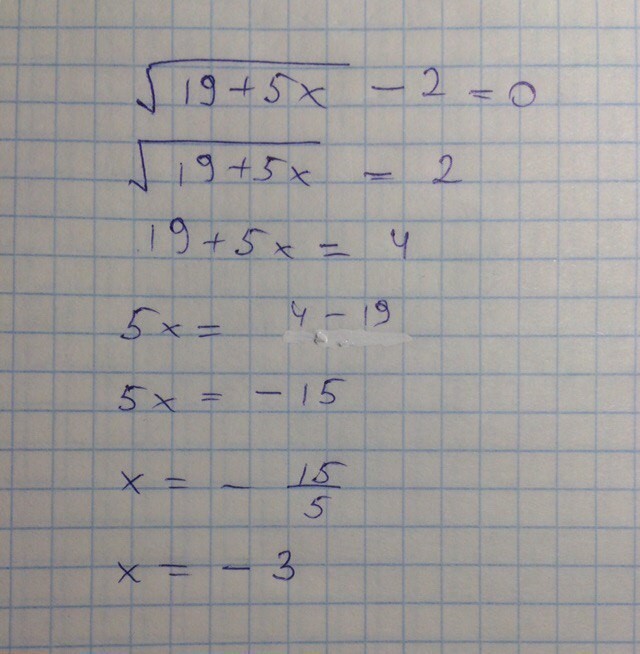 √19+5x - 2 = 0
√19+5x = 2
19+5x = 4
5x = 4-19
5x = -15
x = - 15/5
x = -3